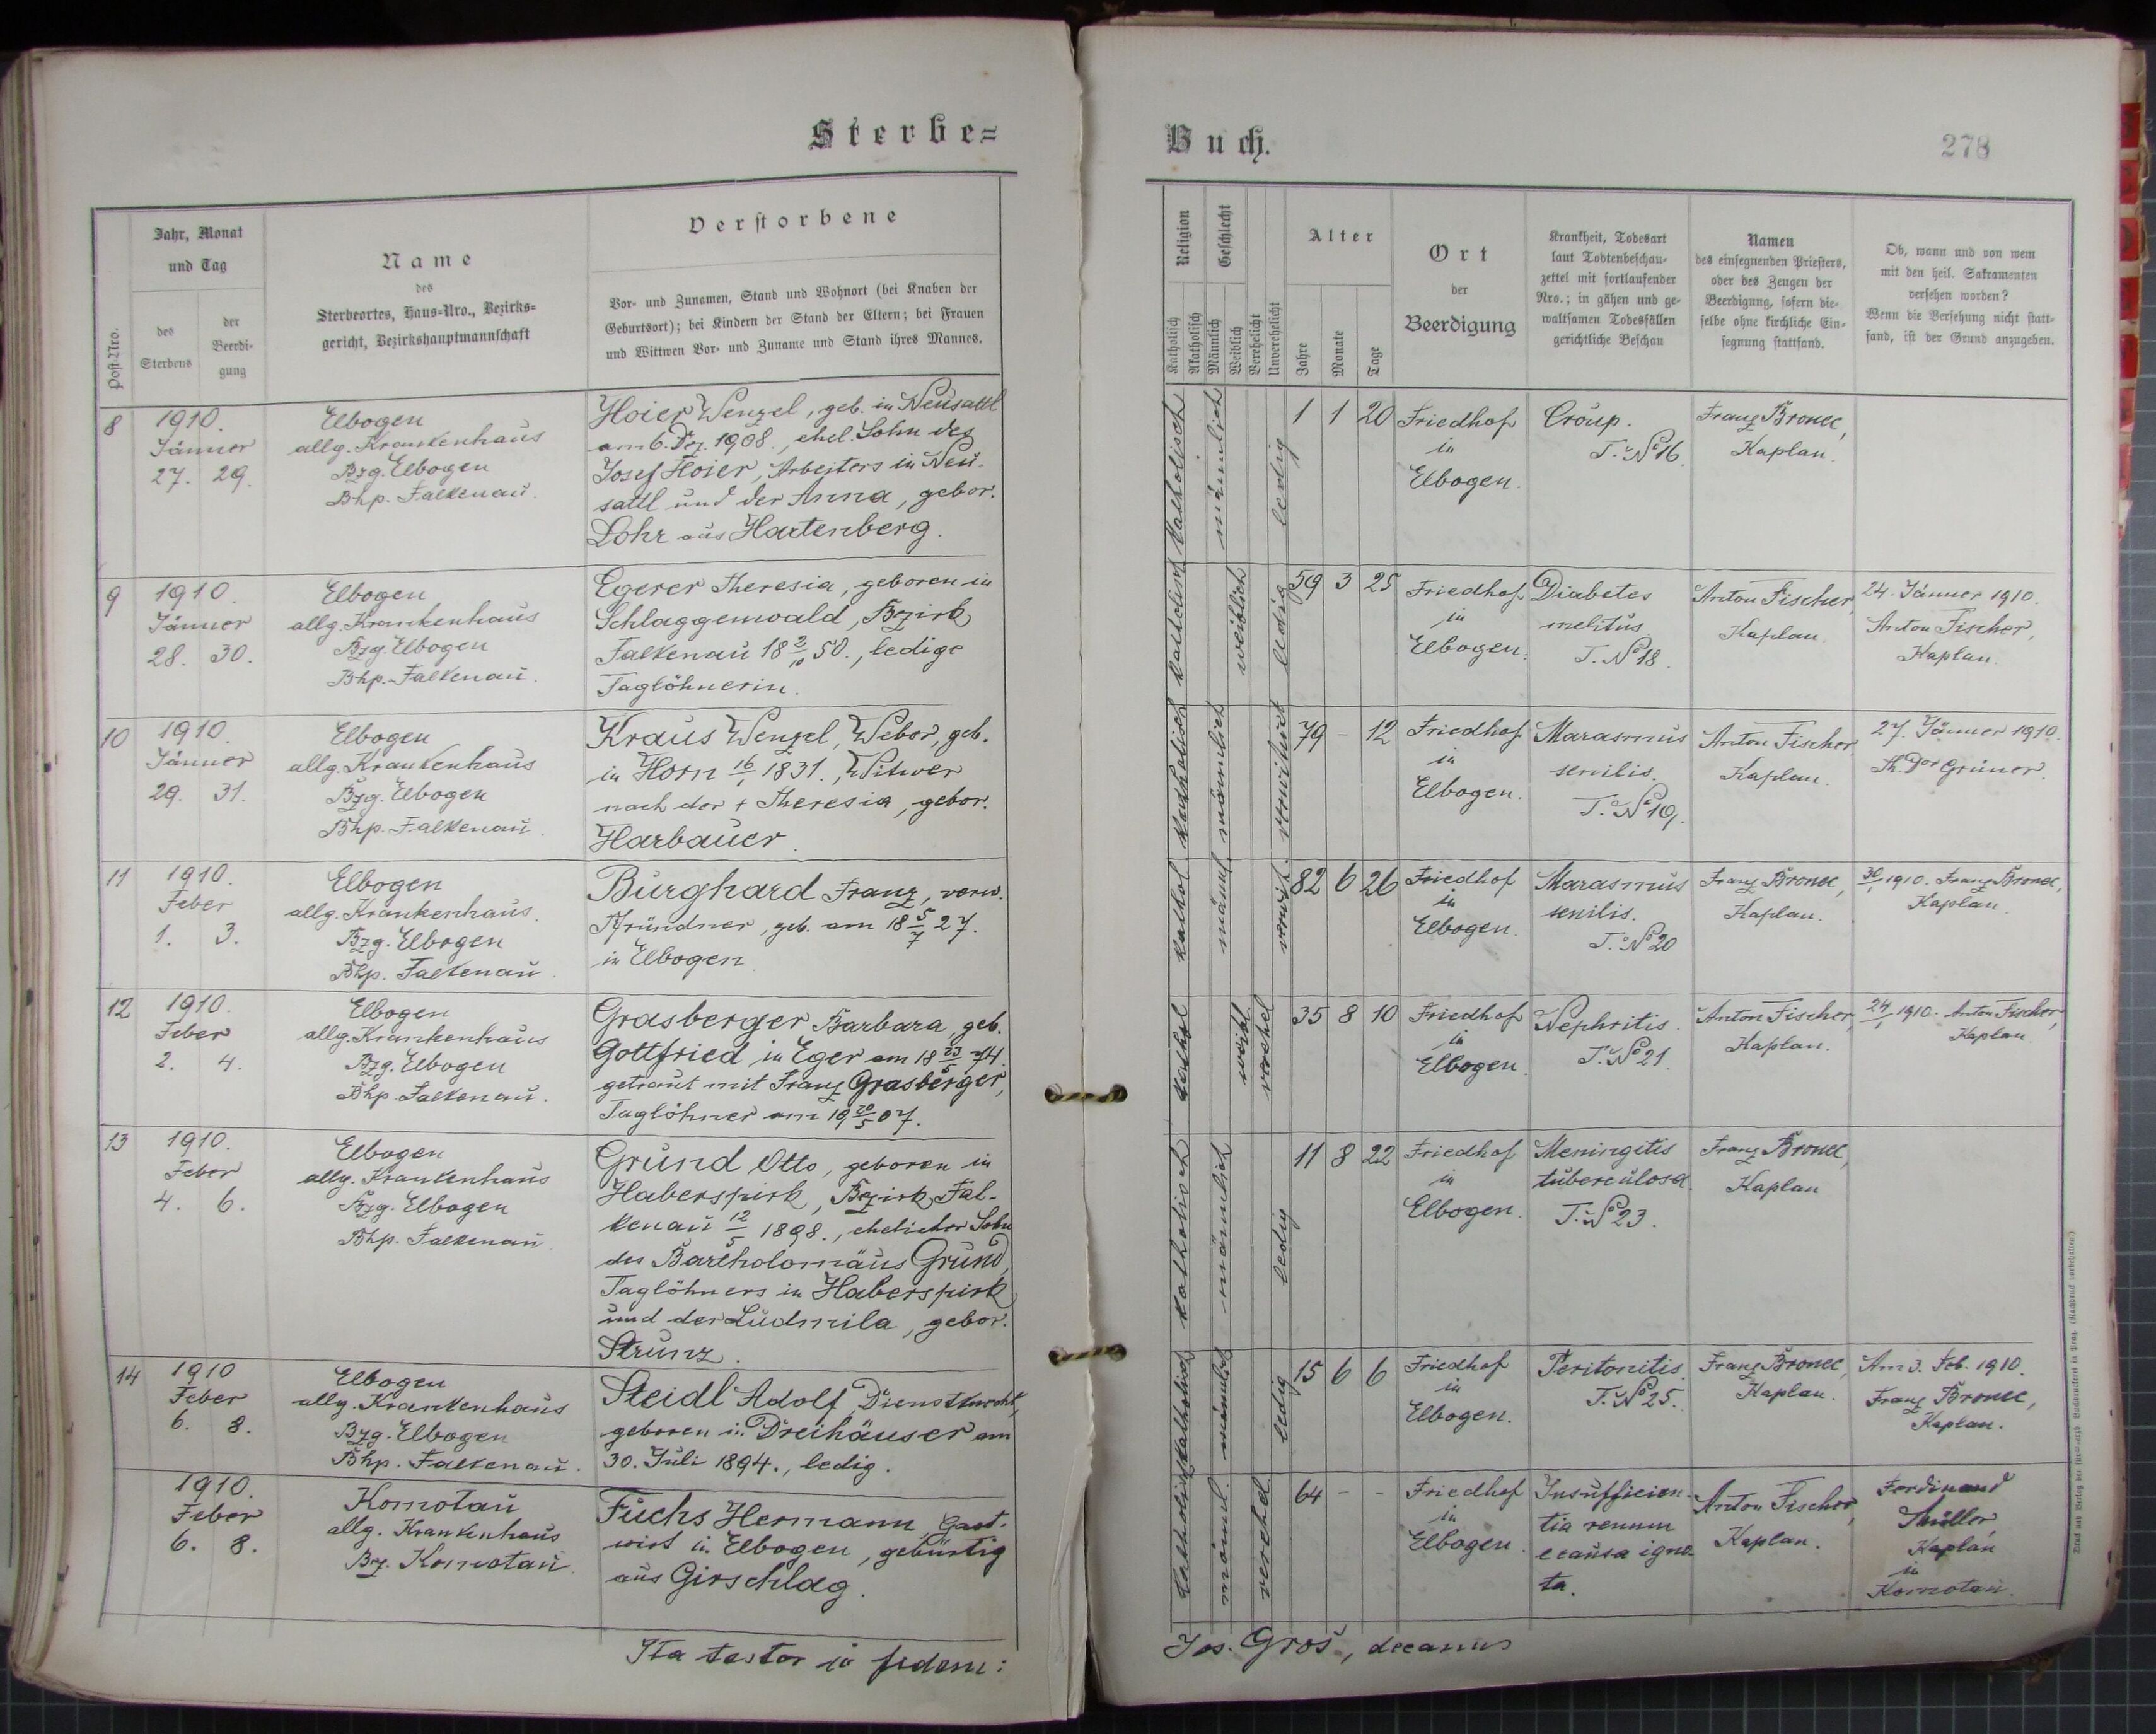 Sterbe=
Jahr, Monat
und Tag
des
Sterbens
der
Beerdi-
gung
Post-Nro.
Name
des
Sterbeortes, Haus-Nro., Bezirks-
gericht, Bezirkshauptmannschaft
Verstorbene
Vor- und Zunamen, Stand und Wohnort (bei Knaben der
Geburtsort); bei Kindern der Stand der Eltern; bei Frauen
und Wittwen Vor- und Zuname und Stand ihres Mannes.
8
1910.
Jänner
27. 29.
Elbogen
allg. Krankenhaus
Bzg. Elbogen
Bhp. Falkenau.
Hoier Wenzel, geb. in Neusattl
am 6. Dez. 1908., ehel. Sohn des
Josef Hoier, Arbeiters in Neu-
sattl und der Anna, gebor.
Lohr aus Hartenberg.
9
1910.
Jänner
28. 30.
Elbogen
allg. Krankenhaus
Bzg. Elbogen
Bhp. Falkenau.
Egerer Theresia, geboren in
Schlaggenwald, Bezirk
Falkenau 18 2/10 50., ledige
Taglöhnerin.
10
1910.
Jänner
29. 31.
Elbogen
allg. Krankenhaus
Bzg. Elbogen
Bhp. Falkenau.
Kraus Wenzel, Weber, geb.
in Horn 16/1 1831., Witwer
nach der + Theresia, gebor.
Harbauer.
11
1910.
Feber
1. 3.
Elbogen
allg. Krankenhaus.
Bzg. Elbogen
Bhp. Falkenau
Burghard Franz, verw.
Pfründner, geb. am 18 5/7 27.
in Elbogen
12
1910.
Feber
2. 4.
Elbogen
allg. Krankenhaus
Bzg. Elbogen
Bhp. Falkenau.
Grasberger Barbara, geb.
Gottfried in Eger am 18 23/5 74.
getraut mit Franz Grasberger,
Taglöhner am 19 20/5 07.
13
1910.
Feber
4. 6.
Elbogen
allg. Krankenhaus
Bzg. Elbogen
Bhp. Falkenau
Grund Otto, geboren in
Haberspirk, Bezirk Fal-
kenau 12/5 1898., ehelicher Sohn
des Bartholomäus Grund,
Taglöhners in Haberspirk
und der Ludmila, gebor.
Strunz.
14
1910
Feber
6. 8.
Elbogen
allg. Krankenhaus
Bzg. Elbogen
Bhp. Falkenau.
Steidl Adolf, Dienstknecht,
geboren in Dreihäuser am
30. Juli 1894., ledig.
1910.
Feber
6. 8.
Komotau
allg. Krankenhaus
Bzg. Komotau
Fuchs Hermann, Gast-
wirt in Elbogen, gebürtig
aus Girschlag.
Ita testor in fidem:
Buch.
278
Religion
Katholisch
Akatholisch
Geschlecht
Männlich
Weiblich
Verehelicht
Unverehelicht
Alter
Jahre
Monate
Tage
Ort
der
Beerdigung
Krankheit, Todesart
laut Todtenbeschau-
zettel mit fortlaufender
Nro.; in gähen und ge-
waltsamen Todesfällen
gerichtliche Beschau
Namen
des einsegnenden Priesters,
oder des Zeugen der
Beerdigung, sofern die-
selbe ohne kirchliche Ein-
segnung stattfand.
Ob, wann und von wem
mit den heil. Sakramenten
versehen worden?
Wenn die Versehung nicht statt-
fand, ist der Grund anzugeben.
katholisch
männlich
ledig
1 1 20
Friedhof
in
Elbogen.
Croup.
T. No 16.
Franz Bronec,
Kaplan.
katholisch
weiblich
ledig
59 3 25
Friedhof
in
Elbogen.
Diabetes
melitus
T. No 18.
Anton Fischer,
Kaplan
24. Jänner 1910.
Anton Fischer,
Kaplan.
katholisch
männlich
verwitwet
79 - 12
Friedhof
in
Elbogen.
Marasmus
senilis.
T. No 19.
Anton Fischer,
Kaplan.
27. Jänner 1910.
Th. Dor Grüner.
kathol
männl
verwit.
82 6 26
Friedhof
in
Elbogen.
Marasmus
senilis.
T. No 20
Franz Bronec,
Kaplan.
30/1 1910. Franz Bronec,
Kaplan
kathol
weibl.
verehel
35 8 10
Friedhof
in
Elbogen.
Nephritis.
T. No 21.
Anton Fischer,
Kaplan.
24/1 1910. Anton Fischer,
Kaplan
katholisch
männlich
ledig
11 8 22
Friedhof
in
Elbogen.
Meningitis
tuberculosa.
T. No 23.
Franz Bronec,
Kaplan
katholisch
männlich
ledig
15 6 6
Friedhof
in
Elbogen.
Peritonitis.
T. No 25.
Franz Bronec,
Kaplan.
Am 3. Feb. 1910.
Franz Bronec,
Kaplan.
katholisch
männl.
verehel.
64 - -
Friedhof
in
Elbogen.
Insufficien-
tia renum
e causa igno-
ta.
Anton Fischer,
Kaplan.
Ferdinand
Müller,
Kaplan
in
Komotau.
Jos. Groš, decanus